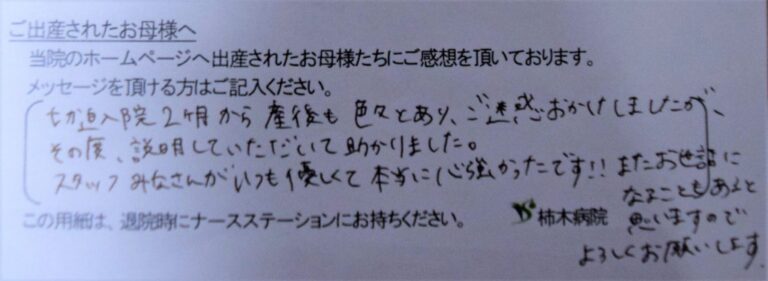 ご出産されたお母様へ
当院のホームページへ出産されたお母様たちにご感想を頂いております。
メッセージを頂ける方はご記入ください。
切迫入院2ヶ月から産後も色々とあり、ご迷惑おかけしましたが、
その度、説明していただいて助かりました。
スタッフみなさんがいつも優しくて本当に心強かったです!!またお世話に
なることもあると
思いますので
よろしくお願いします。
この用紙は、退院時にナースステーションにお持ちください。
柿木病院